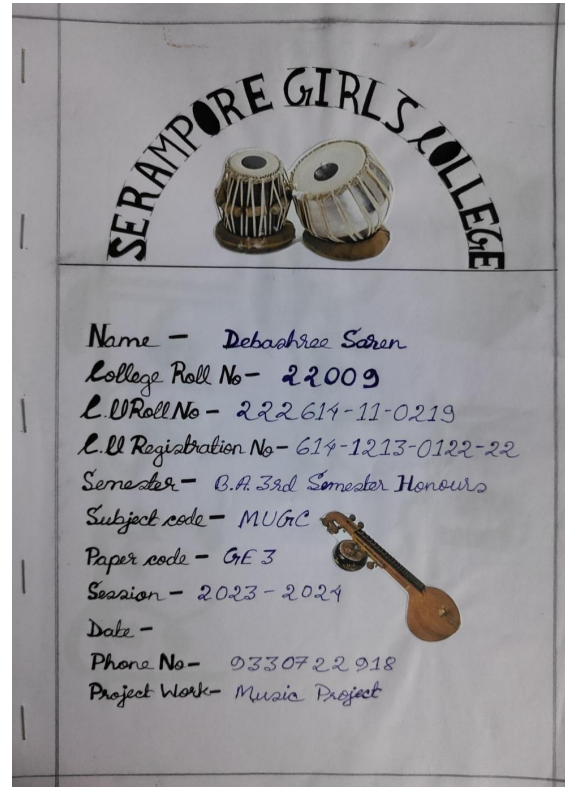 SERAMPORE GIRLS COLLEGE
Name - Debashree Saren
College Roll No - 22009
C.U Roll No - 222614-11-0219
C.U Registration No - 614-1213-0122-22
Semester - B.A. 3rd Semester Honours
Subject code - MUGC
Paper code - GE 3
Session - 2023-2024
Date -
Phone No - 9330722918
Project Work - Music Project